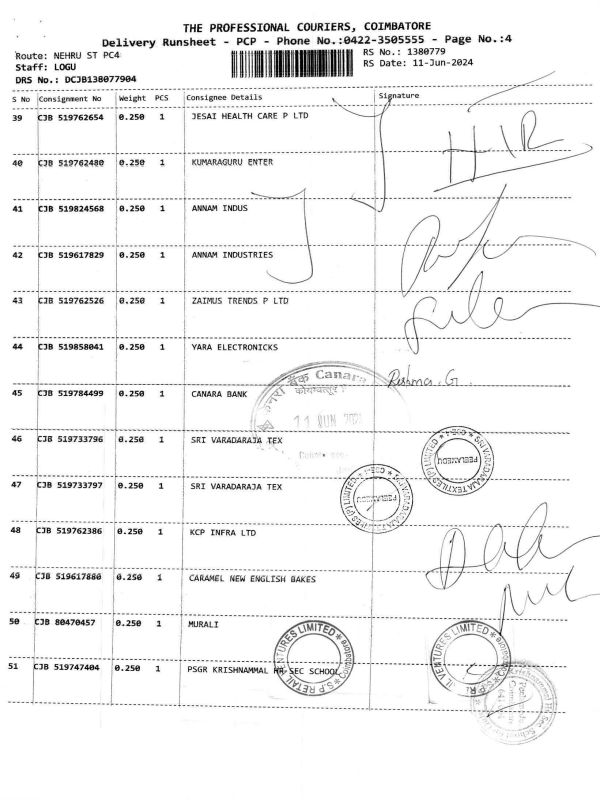 THE PROFESSIONAL COURIERS, COIMBATORE
Delivery Runsheet - PCP - Phone No.:0422-3505555 - Page No.:4
Route: NEHRU ST PC4
RS No.: 1380779
Staff: LOGU
RS Date: 11-Jun-2024
DRS No.: DCJB138077904
S No Consignment No Weight PCS Consignee Details Signature
39 CJB 519762654 0.250 1 JESAI HEALTH CARE P LTD
HIR
40 CJB 519762480 0.250 1 KUMARAGURU ENTER
41 CJB 519824568 0.250 1 ANNAM INDUS
42 CJB 519617829 0.250 1 ANNAM INDUSTRIES
43 CJB 519762526 0.250 1 ZAIMUS TRENDS P LTD
44 CJB 519858041 0.250 1 YARA ELECTRONICKS
Reshma. G.
केनरा बैंक Canara
कोयम्बत्तूर
45 CJB 519784499 0.250 1 CANARA BANK
11 JUN 202
46 CJB 519733796 0.250 1 SRI VARADARAJA TEX
SRI VARADARAJA TEXTILES (P) LIMITED
PEELAMEDU
47 CJB 519733797 0.250 1 SRI VARADARAJA TEX
SRI VARADARAJA TEXTILES (P) LIMITED
PEELAMEDU
48 CJB 519762386 0.250 1 KCP INFRA LTD
49 CJB 519617880 0.250 1 CARAMEL NEW ENGLISH BAKES
50 CJB 80470457 0.250 1 MURALI
S P RETAIL VENTURES LIMITED * Coimbatore *
VENTURES LIMITED * Coimbatore *
51 CJB 519747404 0.250 1 PSGR KRISHNAMMAL HR-SEC SCHOOL